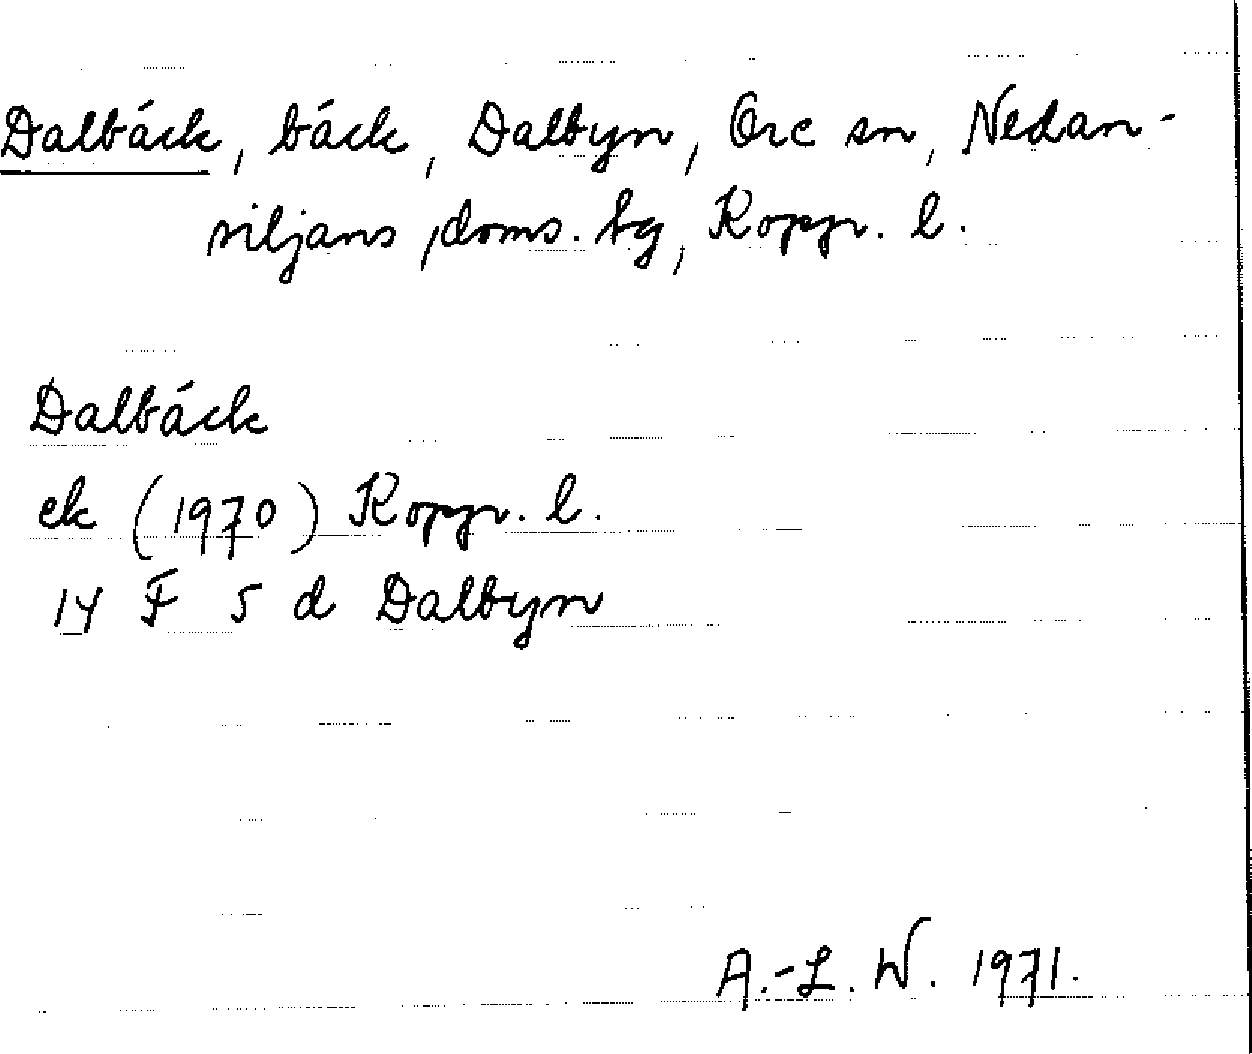 Dalbäck, bäck, Dalbyn, Ore sn, Nedan-
siljans doms. tg, Koppr. l.
Dalbäck
ek (1970) Koppr. l.
14 F 5 d Dalbyn
A.-L. W. 1971.